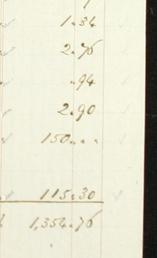 1.34
2.76
.94
2.90
150...
115.30
1,354.76